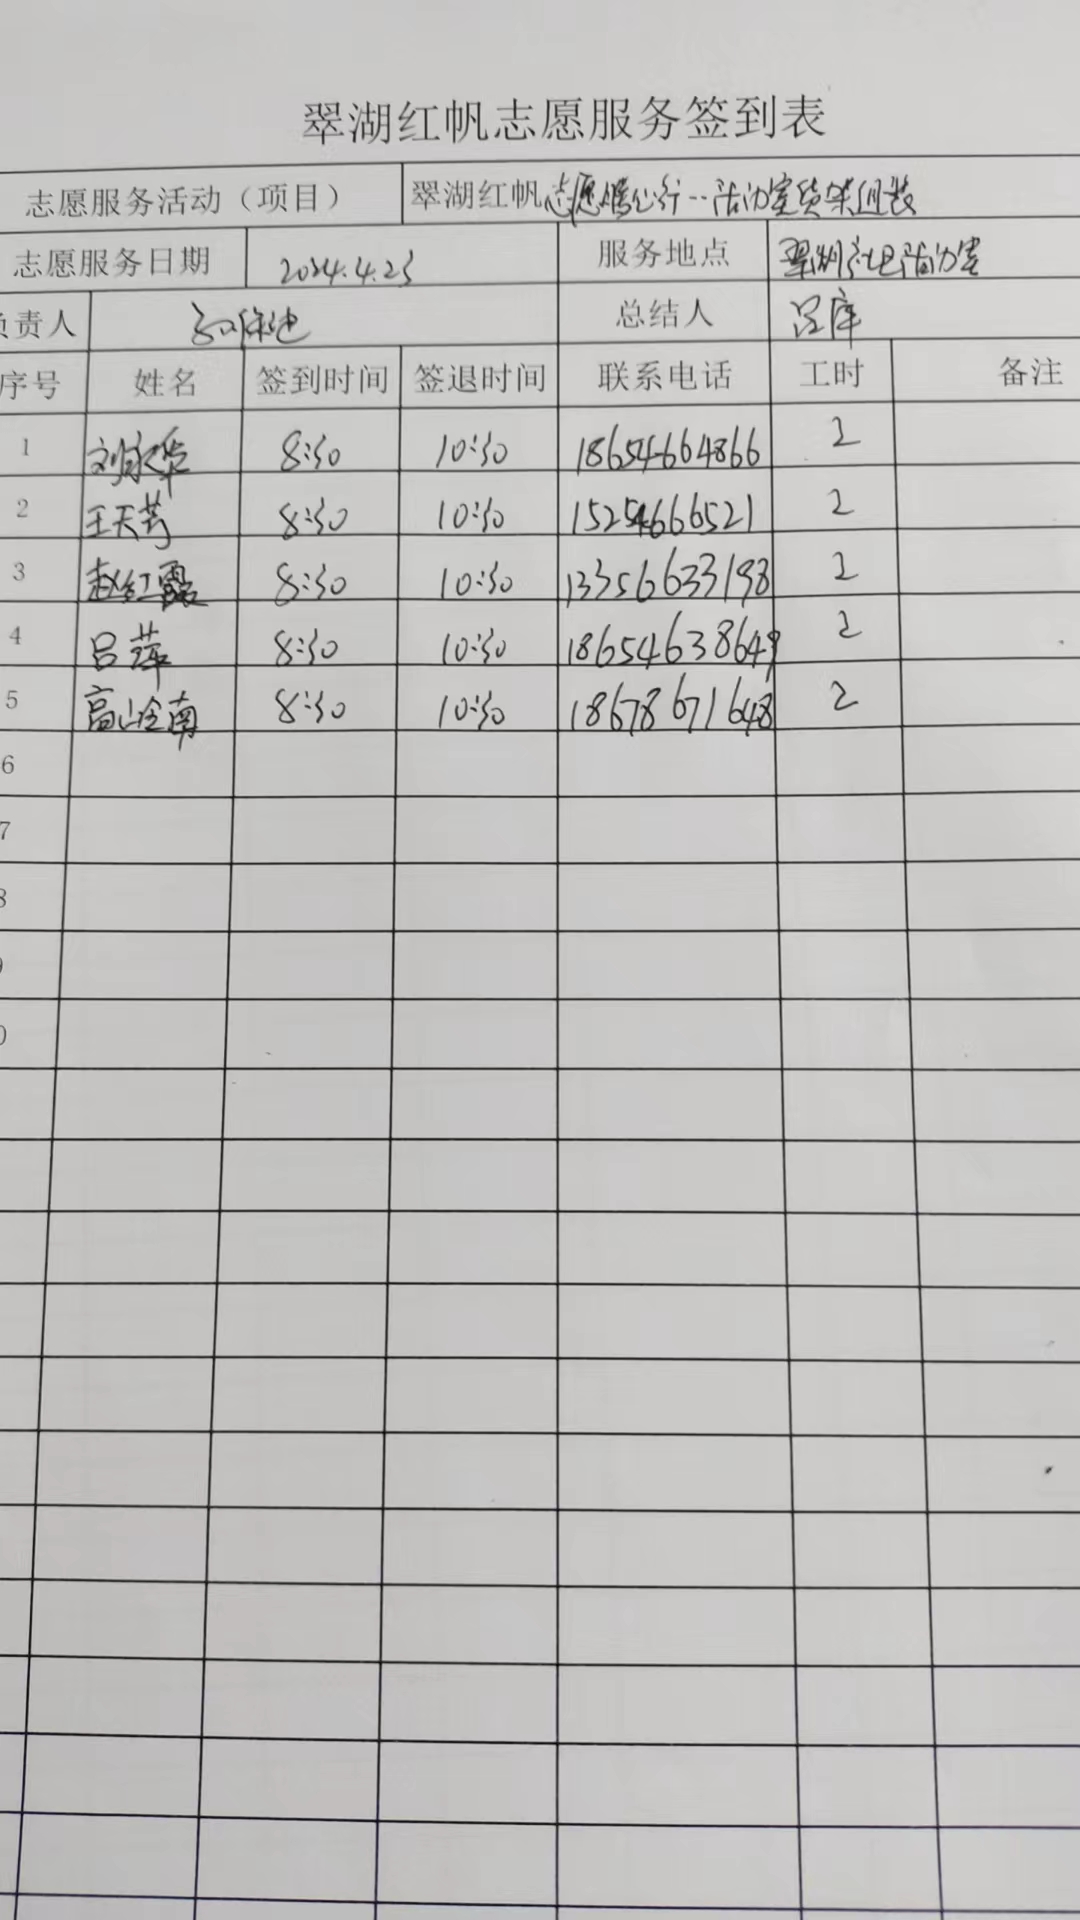 翠湖红帆志愿服务签到表
志愿服务活动（项目） 翠湖红帆志愿暖心行--活动室货架组装
志愿服务日期 2024.4.23 服务地点 翠湖社区活动室
负责人 总结人 吕萍
序号 姓名 签到时间 签退时间 联系电话 工时 备注
1 刘永华 8:30 10:30 18654664866 2
2 王天芳 8:30 10:30 15254666521 2
3 赵红霞 8:30 10:30 13356633198 2
4 吕萍 8:30 10:30 18654638649 2
5 高岭南 8:30 10:30 18678671648 2
6
7
8
9
0